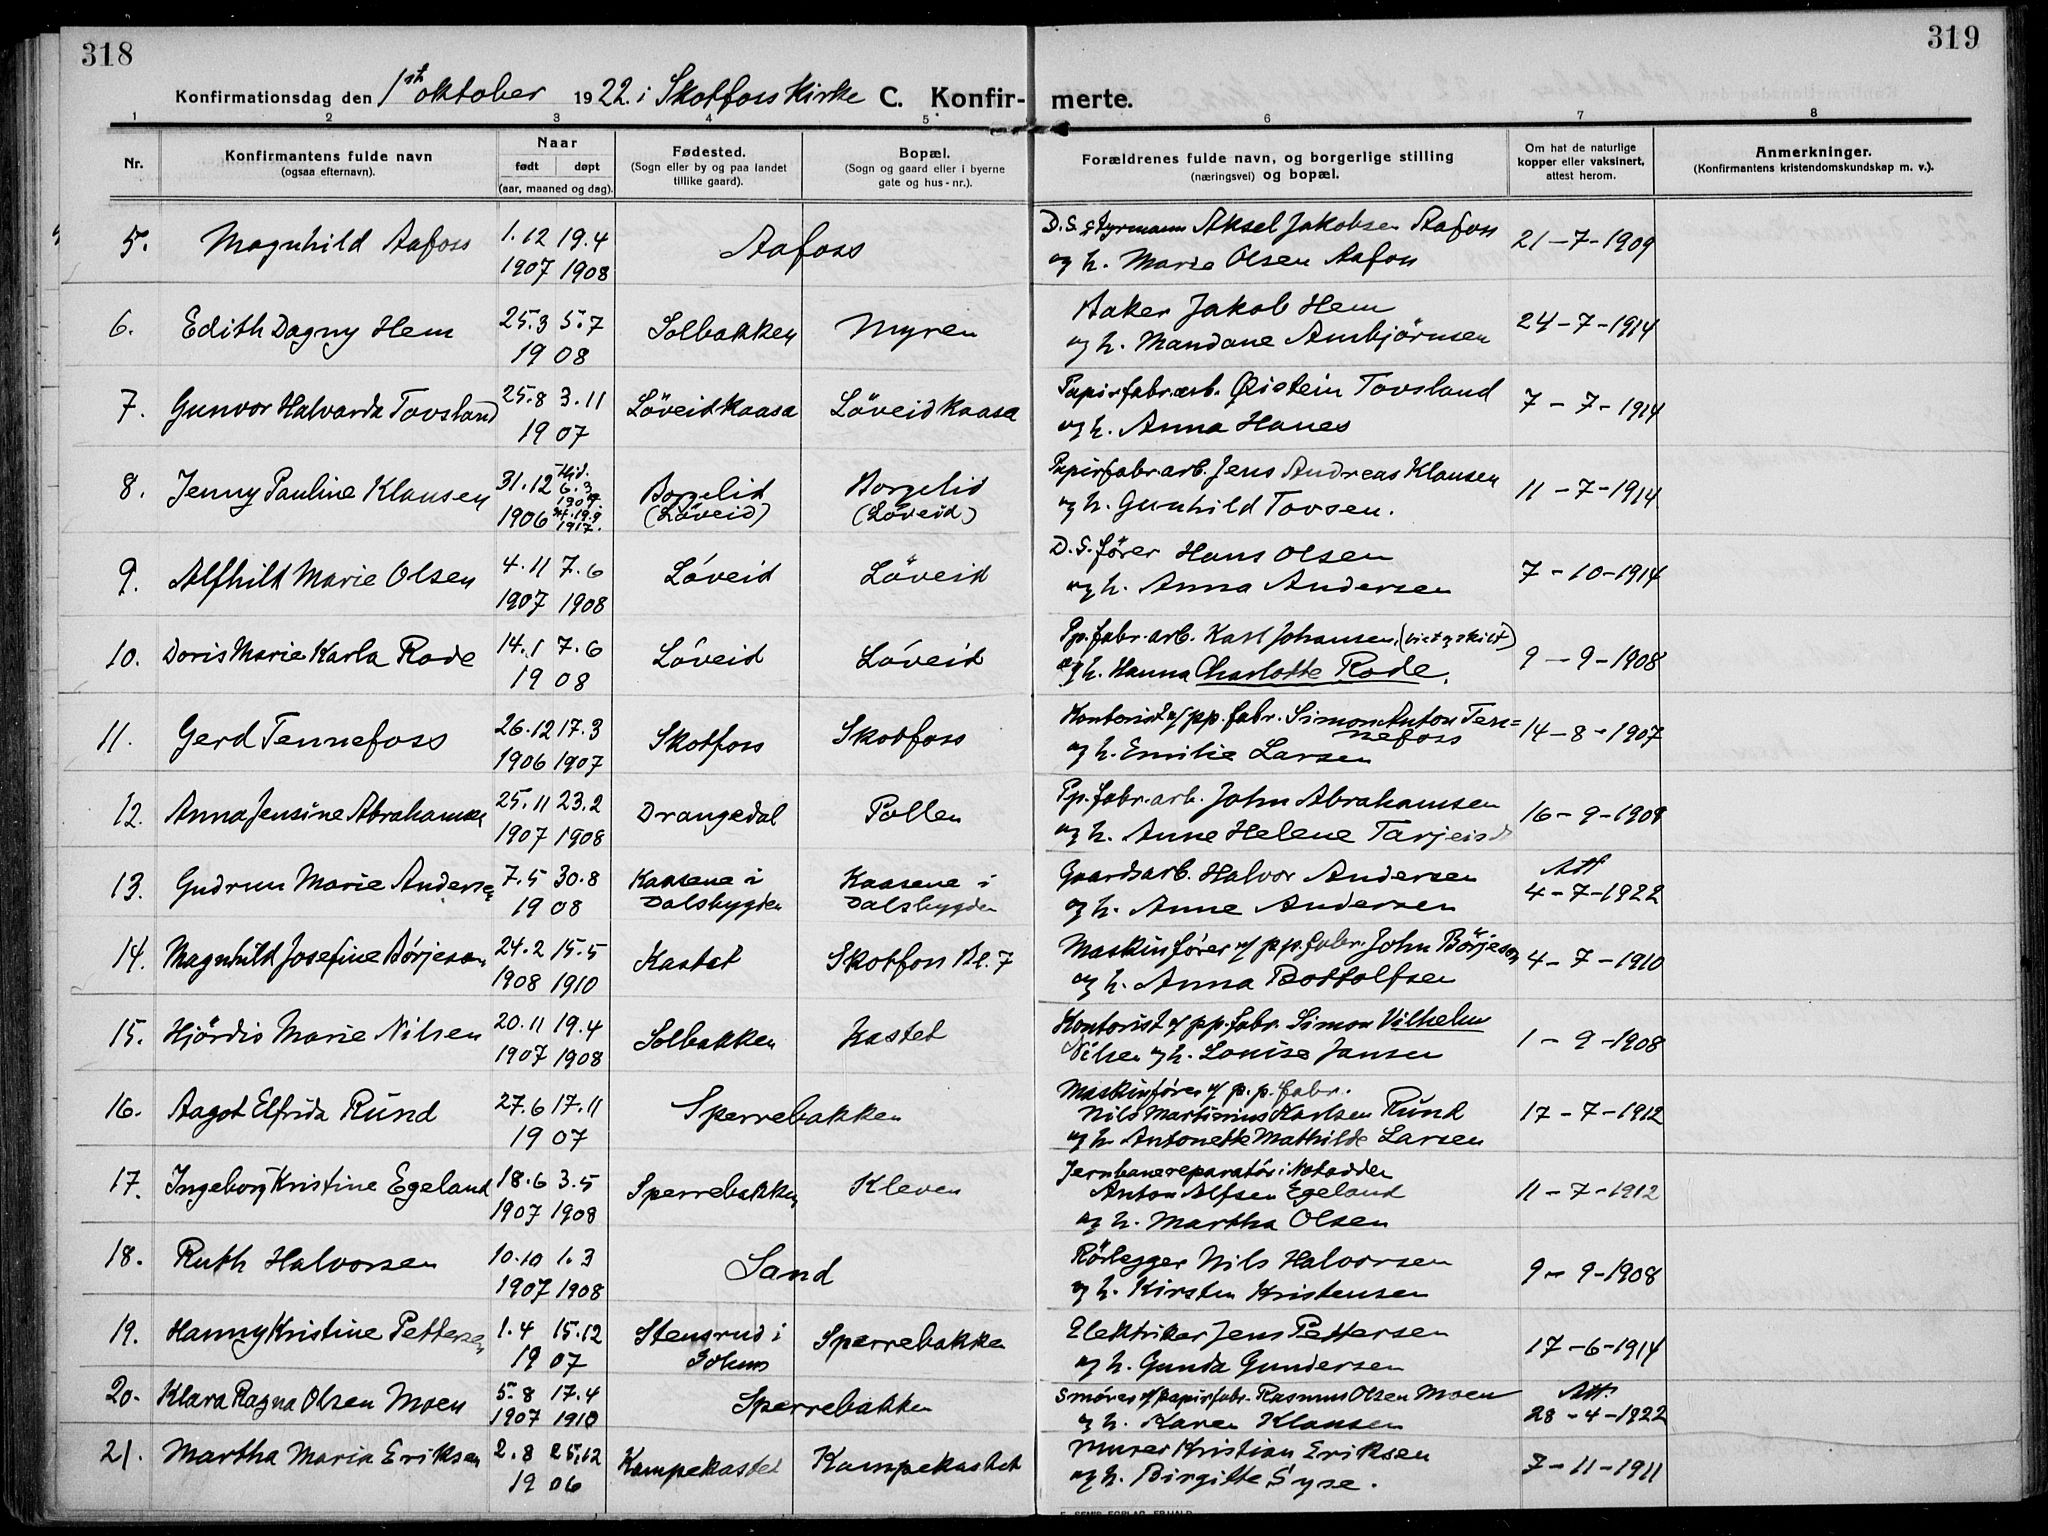 318
319
Konfirmationsdag den 1st oktober 1922. i Skotfoss Kirke C. Konfir- merte.
1 2 3 4 5 6 7 8
Nr.
Konfirmantens fulde navn
(ogsaa efternavn).
Naar
født døpt
(aar, maaned og dag).
Fødested.
(Sogn eller by og paa landet
tillike gaard).
Bopæl.
(Sogn og gaard eller i byerne
gate og hus-nr.).
Forældrenes fulde navn, og borgerlige stilling
(næringsvei) og bopæl.
Om hat de naturlige
kopper eller vaksinert,
attest herom.
Anmerkninger.
(Konfirmantens kristendomskundskap m. v.).
5. Magnhild Aafoss 1.12 19.4 Aafoss D.S. styrmann Aksel Jakobsen Aafoss 21-7-1909
1907 1908 og h. Marie Olsen Aafoss
6. Edith Dagny Hem 25.3 5.7 Solbakken Myren Aaker Jakob Hem 24-7-1914
1908 og h. Mandane Ambjörnsen
7. Gunvor Halvarda Tovsland 25.8 3.11 Löveidkaasa Löveidkaasa Papirfabr.arb. Øistein Tovsland 7-7-1914
1907 og h. Anna Hanes
8. Jenny Pauline Klausen 31.12 Hjd. 6.3 1907 Borgelid Borgelid Papirfabr.arb. Jens Andreas Klausen 11-7-1914
1906 st. 19.9 1917. (Löveid) (Löveid) og h. Gunhild Tovsen.
9. Alfhild Marie Olsen 4.11 7.6 Löveid Löveid D.S. fører Hans Olsen 7-10-1914
1907 1908 og h. Anna Andersen
10. Doris Marie Karla Rode 14.1 7.6 Löveid Löveid Pp.fabr.arb. Karl Johansen (viet og skilt) 9-9-1908
1908 og h. Hanna Charlotte Rode.
11. Gerd Tennefoss 26.12 17.3 Skotfoss Skotfoss Kontorist v/ pp.fabr. Simon Anton Ten=
nefoss 14-8-1907
1906 1907 og h. Emilie Larsen
12. Anna Jensine Abrahamsen 25.11 23.2 Drangedal Pollen Pp.fabr.arb. John Abrahamsen 16-9-1908
1907 1908 og h. Anne Helene Tarjeisd
13. Gudrun Marie Andersen 7.5 30.8 Kaasene i Kaasene i Gaardsarb. Halvor Andersen Att
1908 Dalsbygden Dalsbygden og h. Anne Andersen 4-7-1922
14. Magnhild Josefine Börjeson 24.2 15.5 Kastet Skotfoss Bl. 7 Maskinfører v/ pp.fabr. John Börjeson 4-7-1910
1908 1910 og h. Anna Bottolfsen
15. Hjördis Marie Nilsen 20.11 19.4 Solbakken Kastet Kontorist v/ pp.fabr. Simon Vilhelm 1-9-1908
1907 1908 Nilsen og h. Louise Jansen
16. Aagot Elfrida Rund 27.6 17.11 Sperrebakken Maskinfører v/ p.p. fabr.
1907 Nils Martinius Karlsen Rund 17-7-1912
og h. Antonette Mathilde Larsen
17. Ingeborg Kristine Egeland 18.6 3.5 Sperrebakken Kleven Jernbanereparatör i Notodden
1907 1908 Anton Alfsen Egeland 11-7-1912
og h. Martha Olsen
18. Ruth Halvorsen 10.10 1.3 Sand Rörlegger Nils Halvorsen 9-9-1908
1907 1908 og h. Kirsten Kristensen
19. Hanny Kristine Pettersen 1.4 15.12 Stensrud i Sperrebakken Elektriker Jens Pettersen 17-6-1914
1907 Solum og h. Gunda Gundersen
20. Klara Ragna Olsen Moen 5.8 17.4 Sperrebakken Smörer v/ papirfabr. Rasmus Olsen Moen Att.
1907 1910 og h. Karen Klausen 28-4-1922
21. Martha Maria Eriksen 2.8 25.12 Kampekastet Kampekastet Murer Kristian Eriksen 7-11-1911
1906 og h. Birgitte Syse.